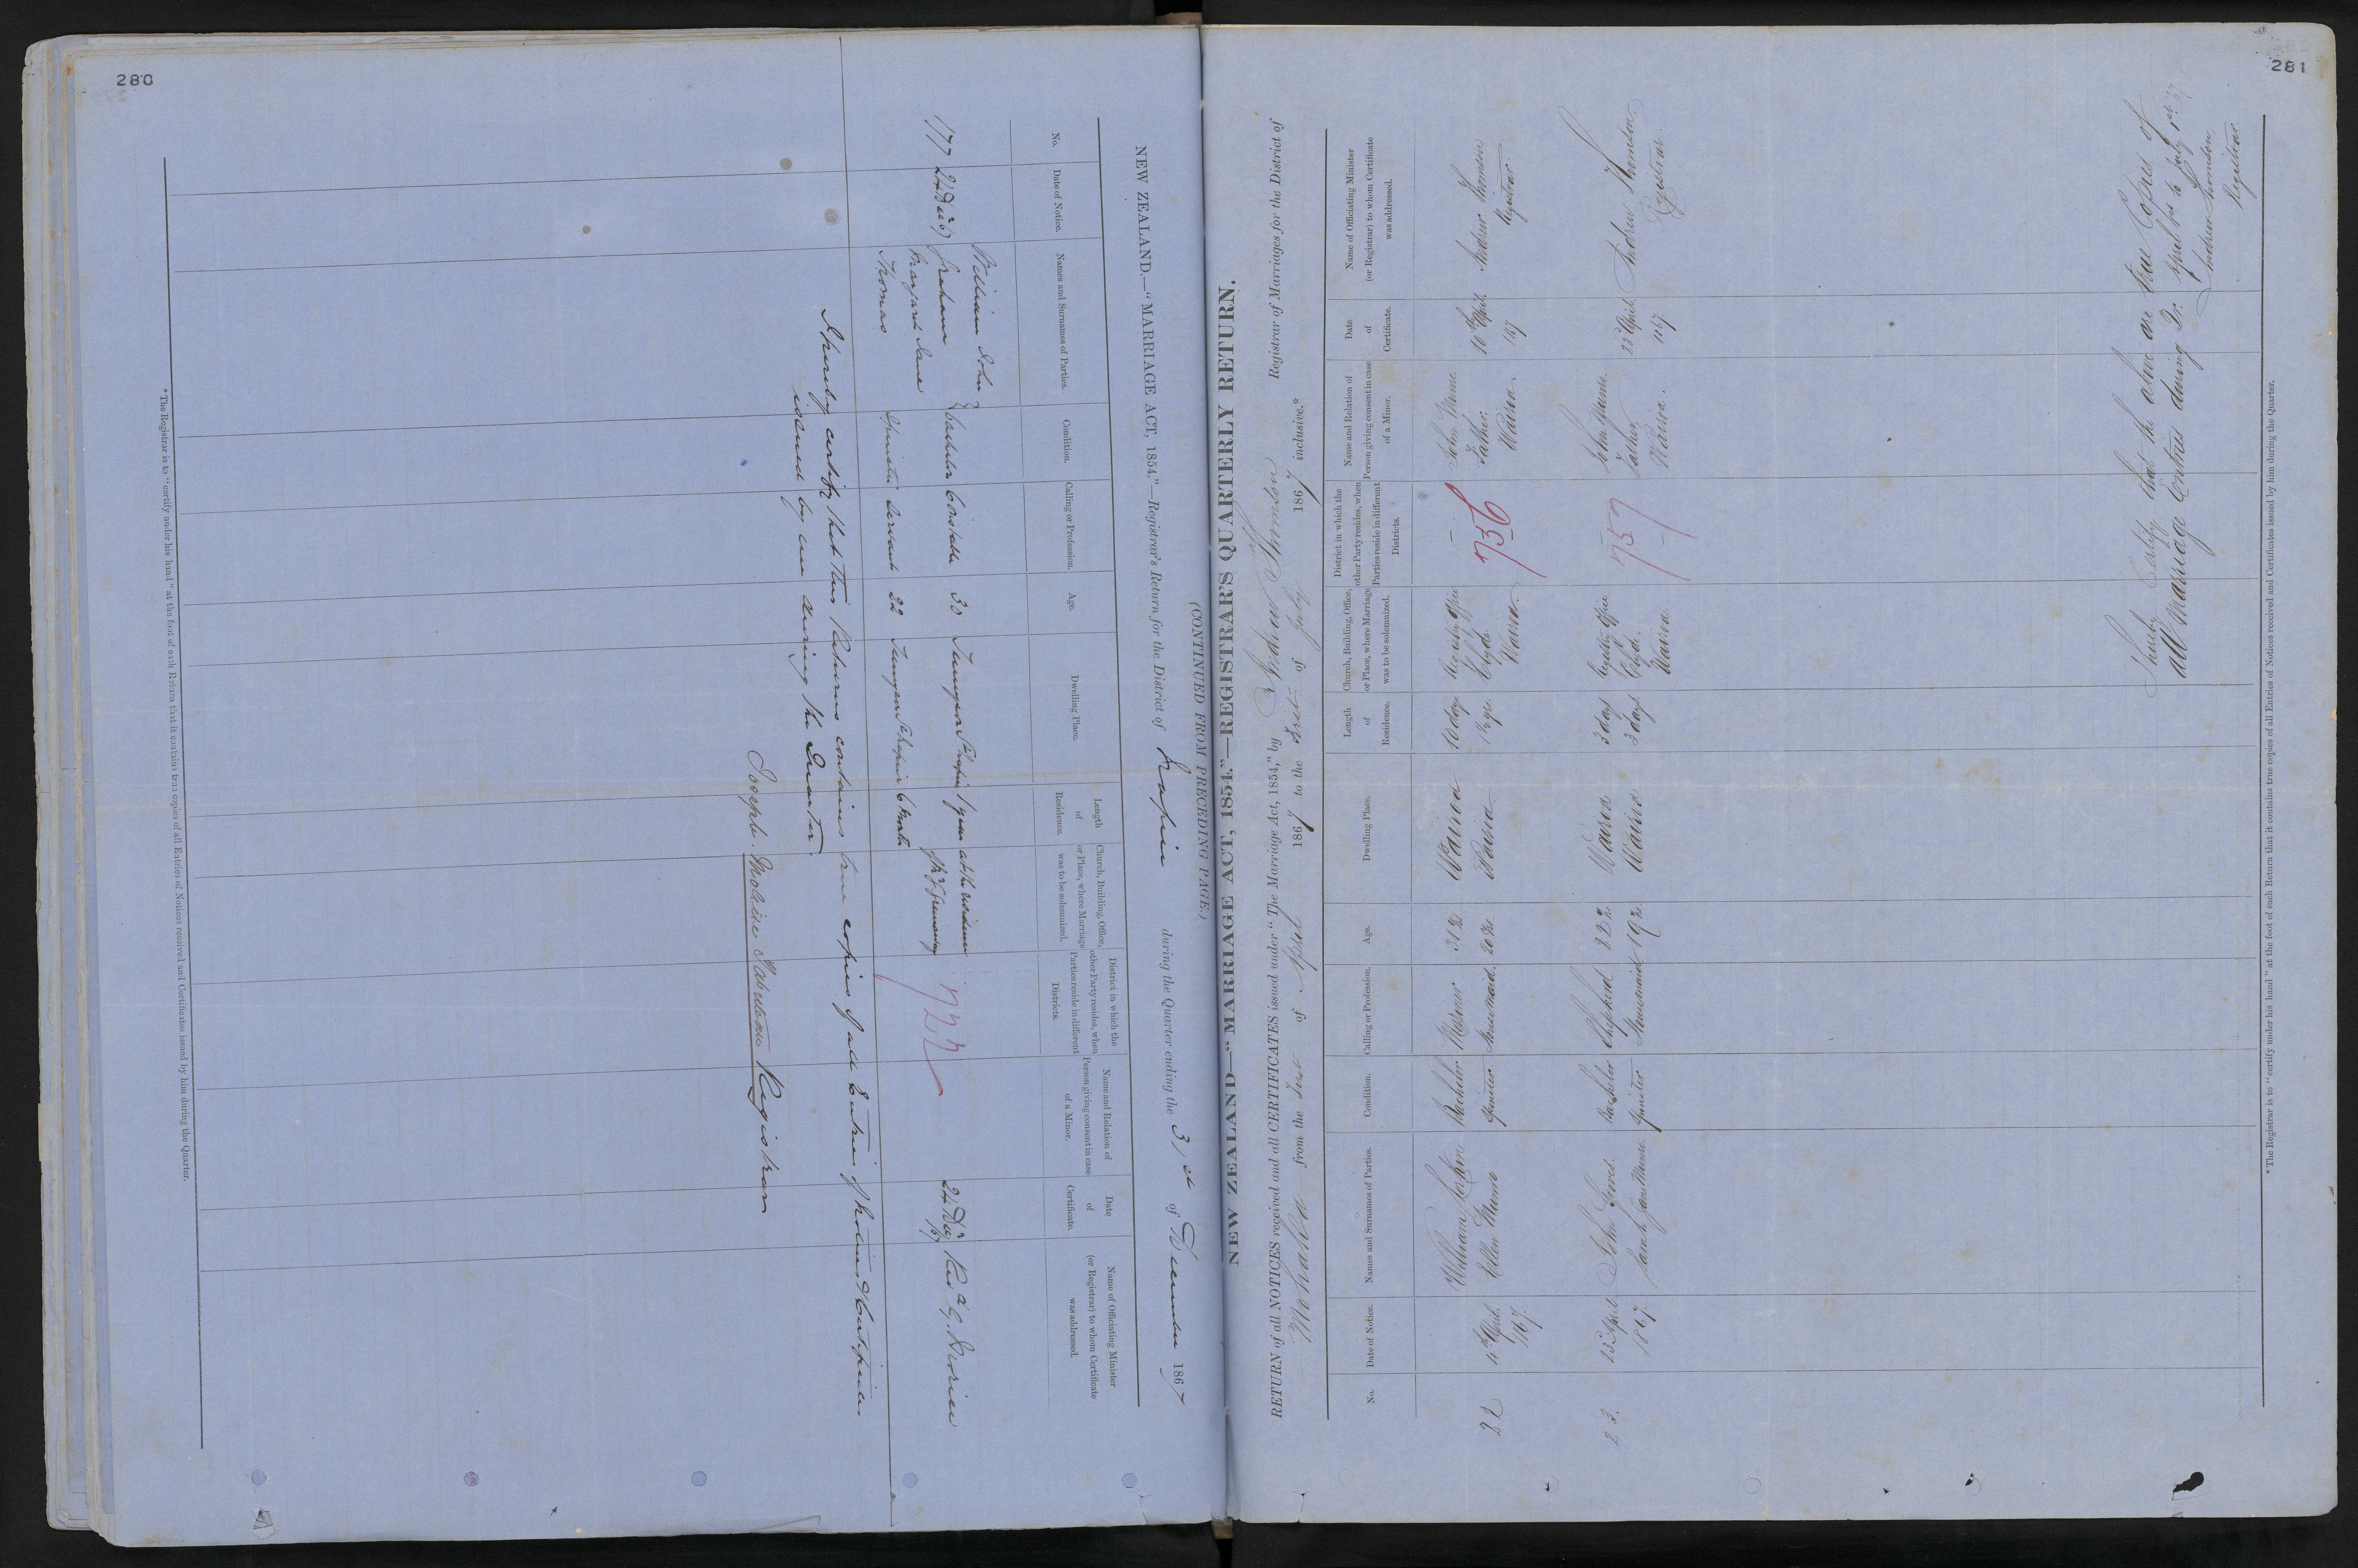 280
(CONTINUED FROM PRECEDING PAGE.)
NEW ZEALAND.—"MARRIAGE ACT, 1854."—Registrar's Return for the District of Napier during the Quarter ending the 31st of December 1867
No.
Date of Notice.
Names and Surnames of Parties.
Condition.
Calling or Profession.
Age.
Dwelling Place.
Length of Residence.
Church, Building, Office, or Place, where Marriage was to be solemnized.
District in which the other Party resides, when Parties reside in different Districts.
Name and Relation of Person giving consent in case of a Minor.
Date of Certificate.
Name of Officiating Minister (or Registrar) to whom Certificate was addressed.
William John
177 24 Decr 67 Graham Bachelor Constable 30 1 year at the residence 24 Decr 67
Margaret Jane Spinster Servant 22 Napier 6 Months
Thomas
727
I hereby certify that this Return contains true copies of all Entries of Notices & Certificates
issued by me during the Quarter.
Registrar
* The Registrar is to "certify under his hand" at the foot of each Return that it contains true copies of all Entries of Notices received and Certificates issued by him during the Quarter.
281
NEW ZEALAND—"MARRIAGE ACT, 1854."—REGISTRAR'S QUARTERLY RETURN.
RETURN of all NOTICES received and all CERTIFICATES issued under "The Marriage Act, 1854," by Andrew Thomson Registrar of Marriages for the District of
from the First of April 1867 to the First of July 1867 inclusive.*
No.
Date of Notice.
Names and Surnames of Parties.
Condition.
Calling or Profession.
Age.
Dwelling Place.
Length of Residence.
Church, Building, Office, or Place, where Marriage was to be solemnized.
District in which the other Party resides, when Parties reside in different Districts.
Name and Relation of Person giving consent in case of a Minor.
Date of Certificate.
Name of Officiating Minister (or Registrar) to whom Certificate was addressed.
22 April William Bachelor Wairoa 10 days Registry Office — John 10th April Andrew Thomson
1867. Ellen Munro Spinster Housemaid. Wairoa Clyde Father. 1867 Registrar.
Wairoa. Wairoa.
756
23. April John Bachelor Shepherd Wairoa 3 days Registry Office — John 23d April Andrew Thomson
1867. Sarah Jane Spinster Housemaid Wairoa 3 days Clyde. Father 1867. Registrar.
Wairoa. Wairoa.
757
I hereby Certify that the above are true Copies of
all Marriage Entries during Qr. April 1st to July 1st 67
Andrew Thomson,
Registrar
* The Registrar is to "certify under his hand" at the foot of each Return that it contains true copies of all Entries of Notices received and Certificates issued by him during the Quarter.